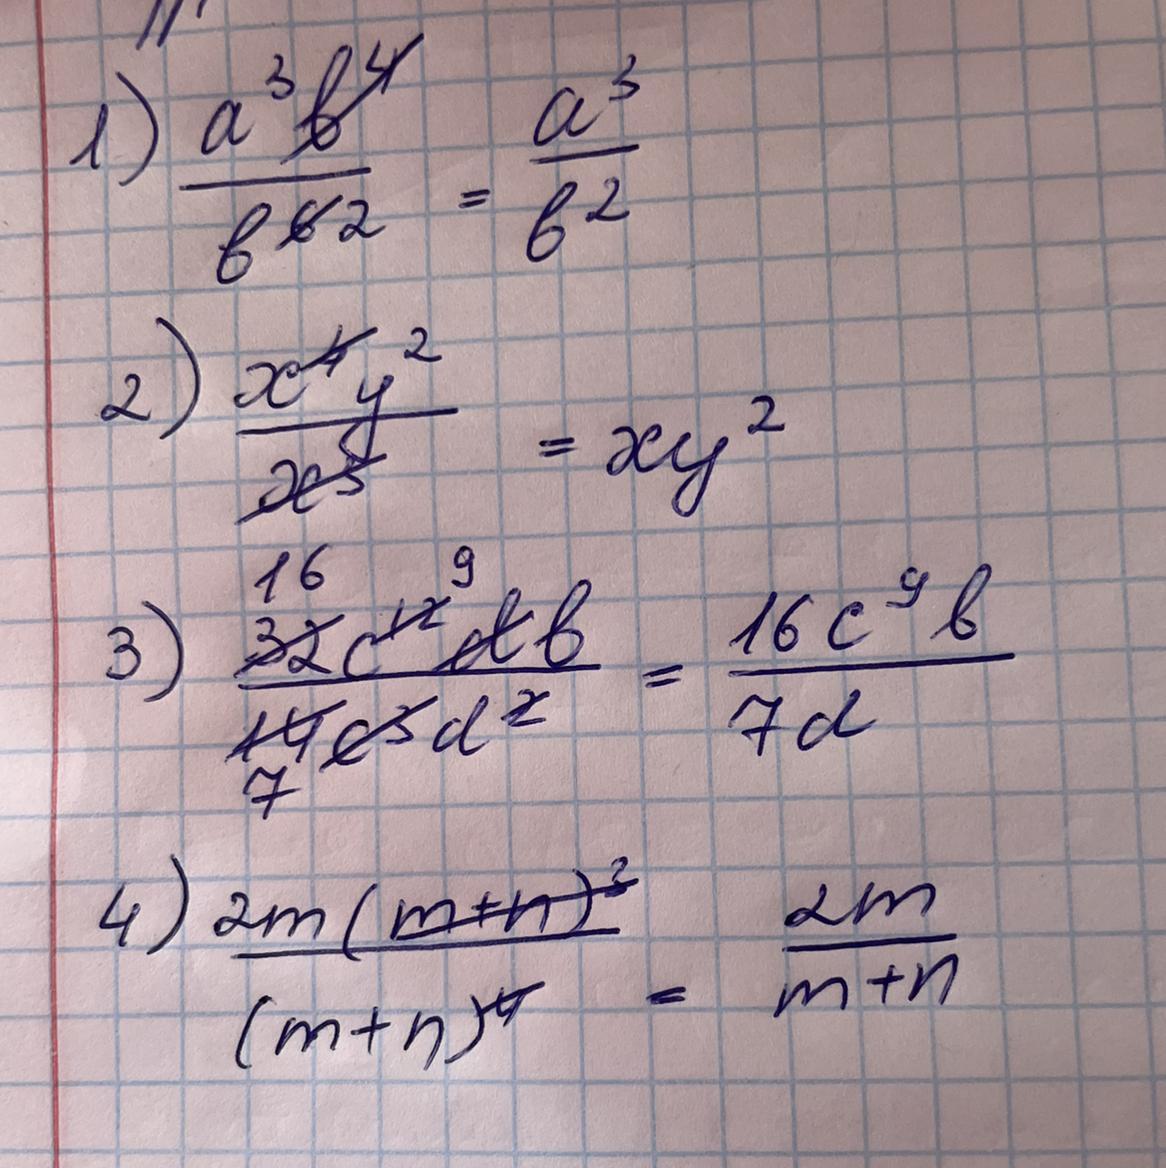 1) a³b⁴ / b⁶ ² = a³ / b²
2) x⁴y² / x³ = xy²
16 9
3) 32c¹²db / 14c³d² = 16c⁹b / 7d
7
4) 2m(m+n)³ / (m+n)⁴ = 2m / m+n